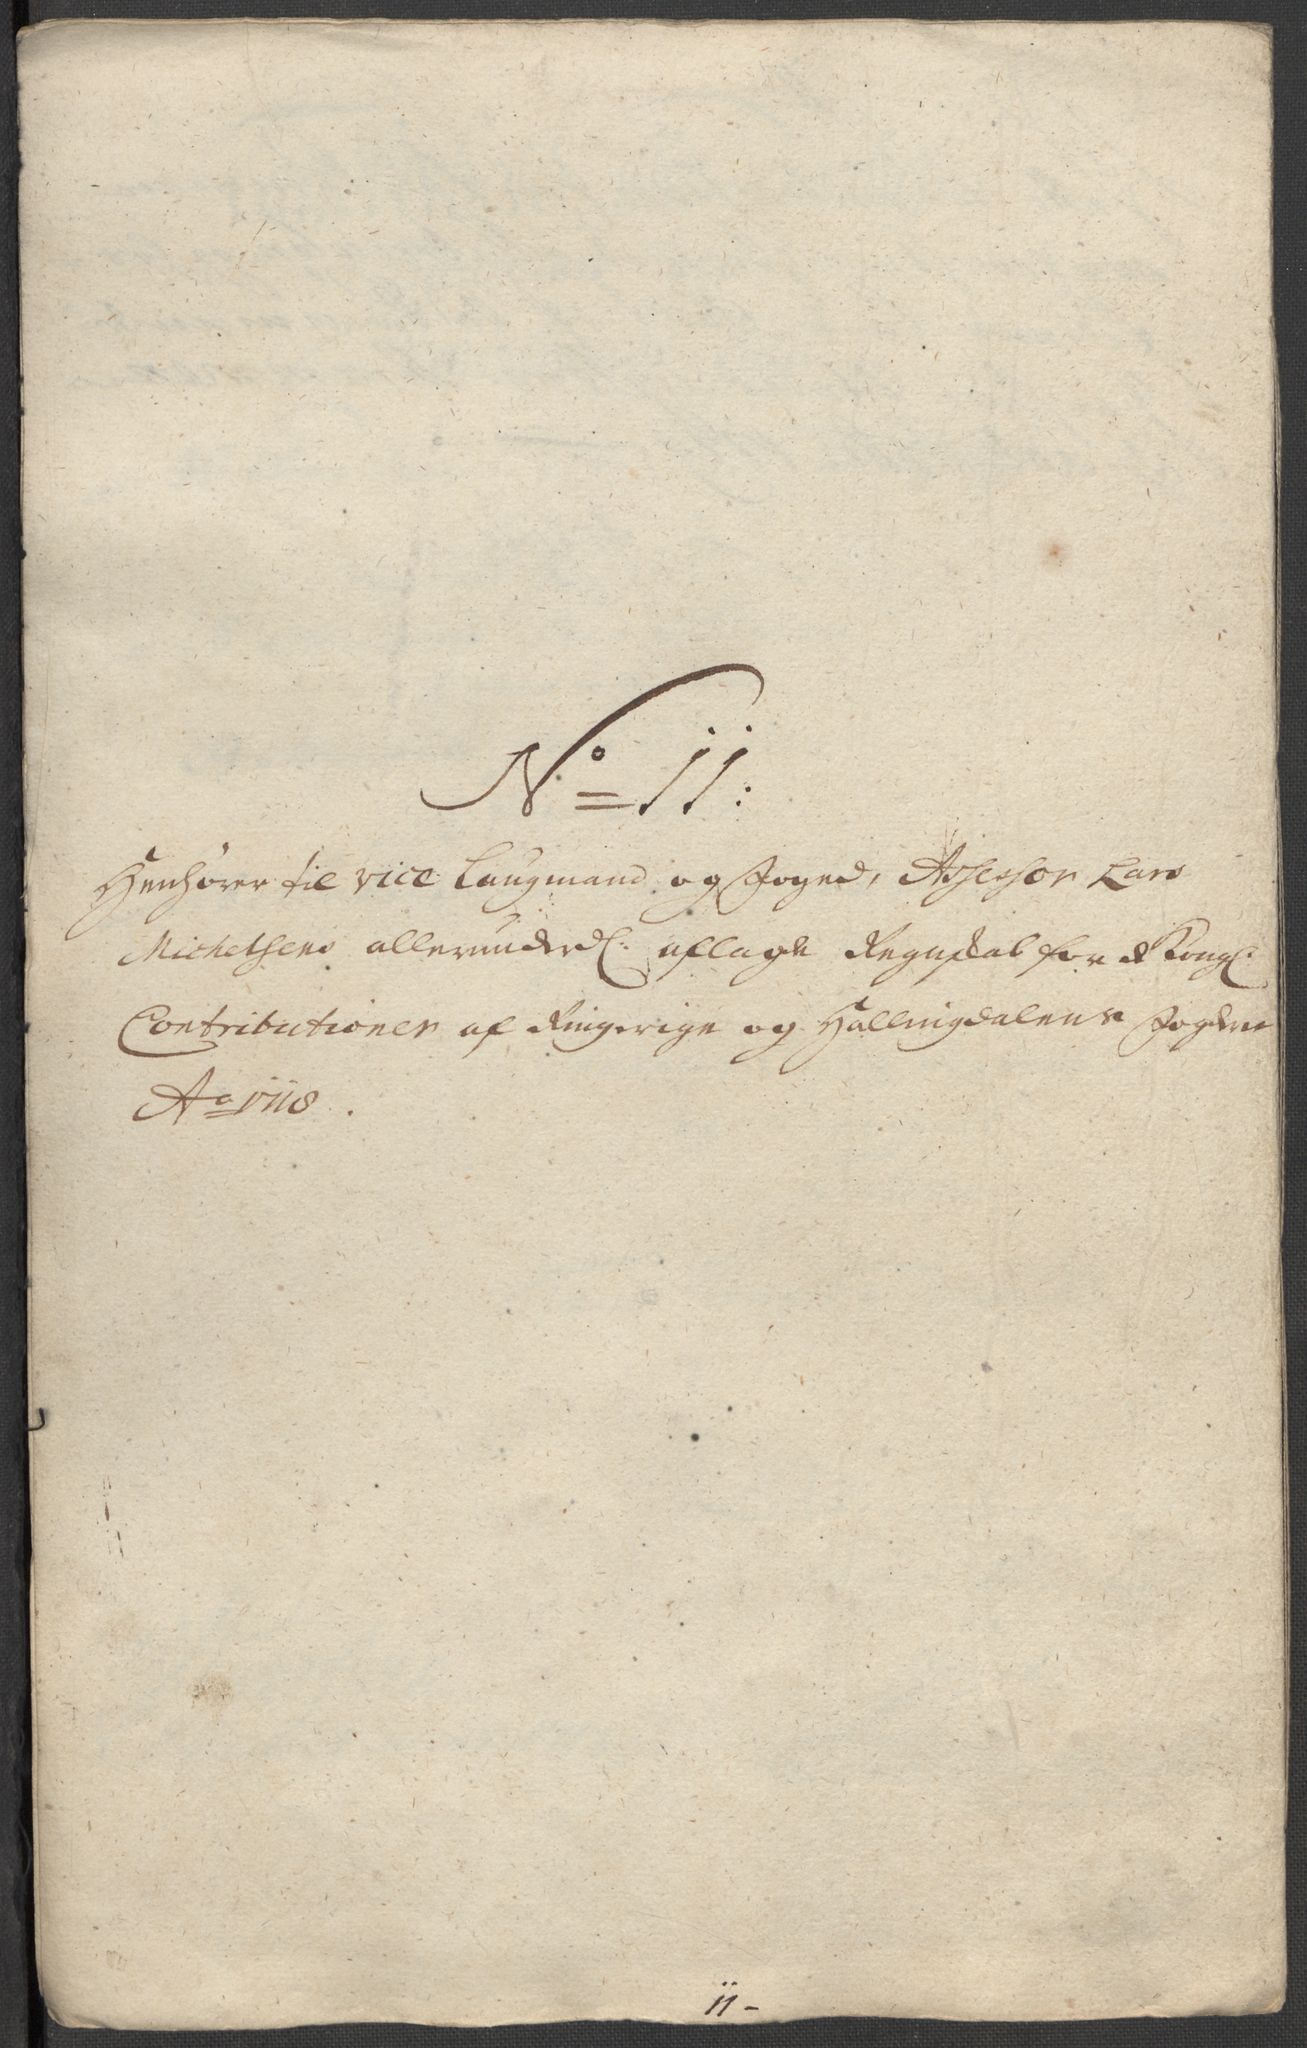 No 11:
Henhører til vice Laugmand og Foged, Assessor Lars
Michelsens allerunderd: aflagde Regnskab for de Kongl:
Contributioner af Ringerige og Hallingdalens Fogderie
Ao 1718.
11-